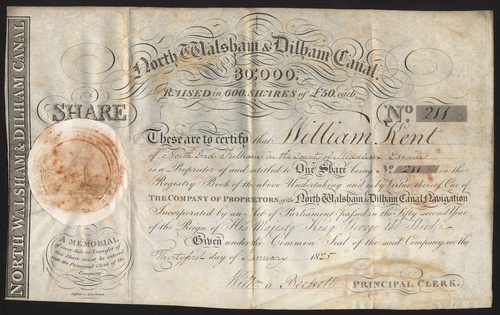 NORTH WALSHAM & DILHAM CANAL
North Walsham & Dilham Canal.
30,000.
RAISED in 600 SHARES of £50, each.
SHARE
No. 211
These are to certify that William Kent
of North End Fulham in the County of Middlesex Esquire
is a Proprietor of and intitled to One Share being No. 211 in the
Registry Book of the above Undertaking and is by Virtue thereof One of
THE COMPANY OF PROPRIETORS, of the North Walsham & Dilham Canal Navigation
Incorporated by an Act of Parliament passed in the Fifty second Year
of the Reign of His Majesty King George the Third
Given under the Common Seal of the said Company, on the
Thirty first day of January 1825
A MEMORIAL
of every Sale or Transfer of
this Share must be entered
with the Principal Clerk of the
Company.
PRINCIPAL CLERK.